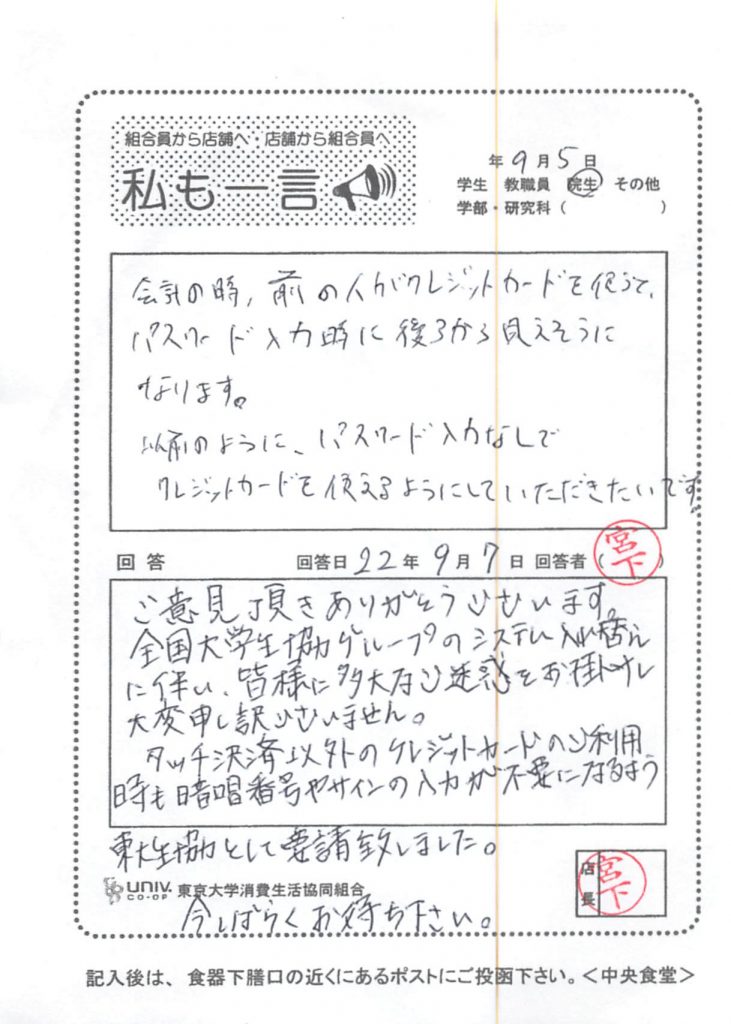 組合員から店舗へ・店舗から組合員へ
私も一言
年9月5日
学生 教職員 院生 その他
学部・研究科( )
会計の時、前の人がクレジットカードを使うて、
パスワード入力時に後ろから見えそうに
なります。
以前のように、パスワード入力なしで
クレジットカードを使えるようにしていただきたいです
回答 回答日 22年9月7日 回答者(宮下)
ご意見頂きありがとうございます。
全国大学生協グループのシステム入れ替え
に伴い、皆様に多大なご迷惑をお掛けし
大変申し訳ございません。
タッチ決済以外のクレジットカードのご利用
時も暗唱番号やサインの入力が不要になるよう
東大生協として要請致しました。
UNIV. CO-OP 東京大学消費生活協同組合
店長 宮下
今しばらくお待ち下さい。
記入後は、食器下膳口の近くにあるポストにご投函下さい。<中央食堂>